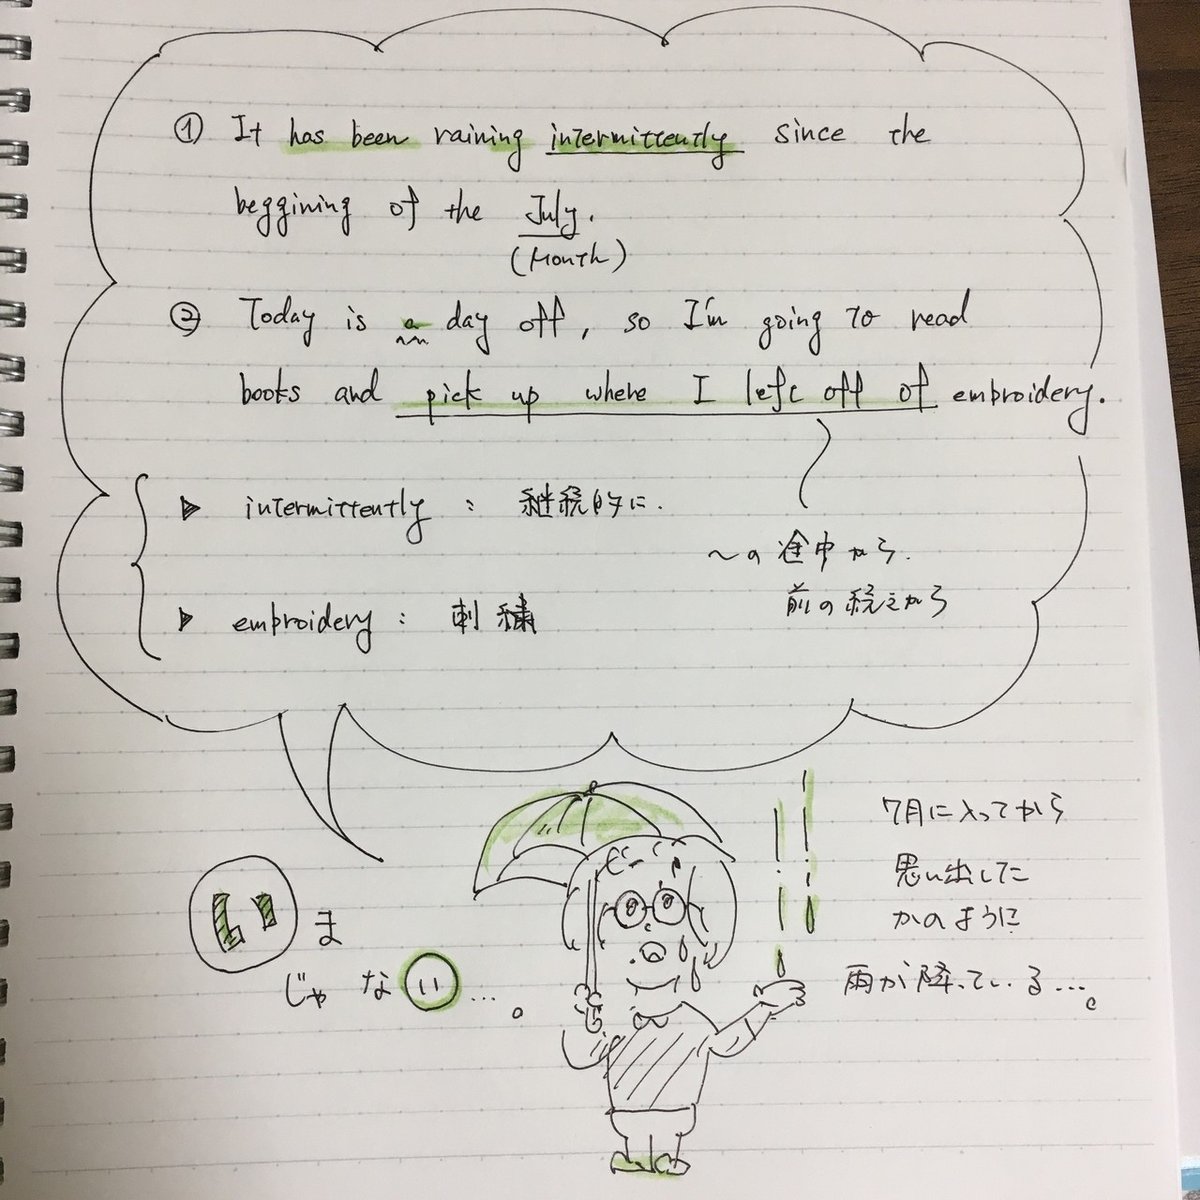 ① It has been raining intermittently since the
beggining of the July.
(Month)
② Today is a day off, so I'm going to read
books and pick up where I left off of embroidery.
▶ intermittently : 継続的に.
〜の途中から.
前の続きから
▶ embroidery : 刺繍
7月に入ってから
思い出した
かのように
雨が降っている...。
いま
じゃない...。